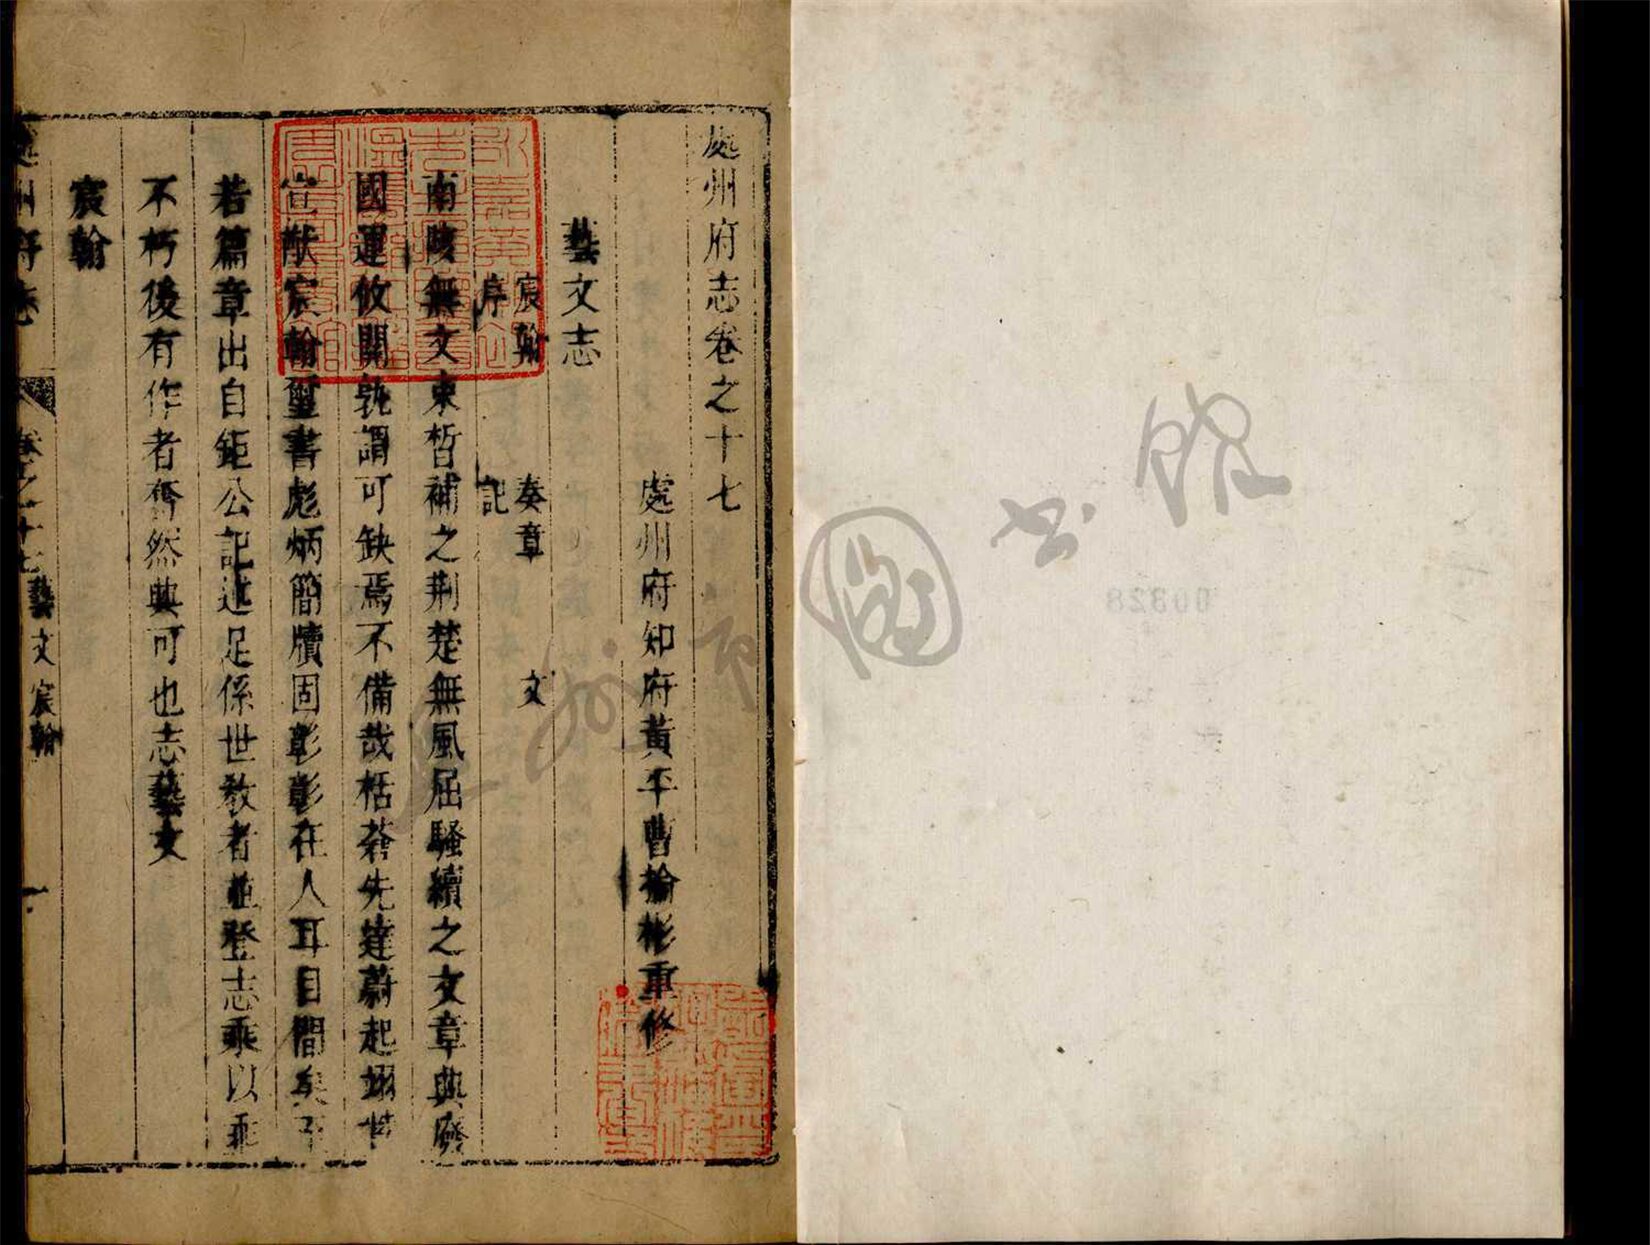 處州府志卷之十七
處州府知府黃平曹掄彬重修
藝文志
宸翰 奏章 文
序 記
南陔無文束晳補之荆楚無風屈騷續之文章典廢
國運攸關孰謂可缺焉不備哉栝蒼先達蔚起
宣猷宸翰璽書彪炳簡牘固彰彰在人耳目間矣
若篇章出自鉅公記述足係世敎者並登志乘以垂
不朽後有作者奮然典可也志藝文
宸翰
處州府志 卷之十七 藝文 宸翰 一
圖書館
00328